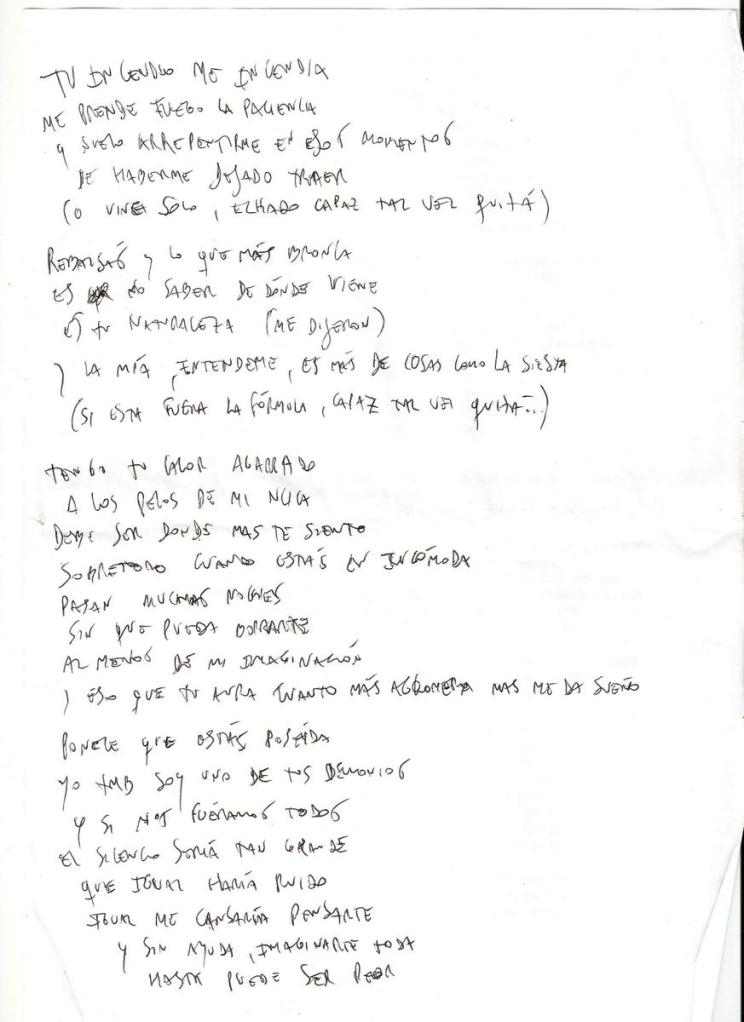 TU INCENDIO ME INCENDIA
ME PRENDE FUEGO LA PACIENCIA
Y SUELO ARREPENTIRME EN ESOS MOMENTOS
DE HABERME DEJADO TRAER
(O VINE SOLO, ECHADO CAPAZ TAL VEZ QUIZÁ)
REBALSÁS Y LO QUE MÁS BRONCA
ES NO SABER DE DÓNDE VIENE
ES TU NATURALEZA (ME DIJERON)
Y LA MÍA, ENTENDEME, ES MÁS DE COSAS COMO LA SIESTA
(SI ESTA FUERA LA FÓRMULA, CAPAZ TAL VEZ QUIZÁ...)
TENGO TU CALOR AGARRADO
A LOS PELOS DE MI NUCA
DEBE SER DONDE MAS TE SIENTO
SOBRETODO CUANDO ESTÁS EN INCÓMODA
PASAN MUCHAS NOCHES
SIN QUE PUEDA BORRARTE
AL MENOS DE MI IMAGINACIÓN
Y ESO QUE TU AURA CUANTO MÁS MAS ME DA SUEÑO
PONELE QUE ESTÁS POSEÍDA
YO TMB SOY UNO DE TUS DEMONIOS
Y SI NOS FUÉRAMOS TODOS
EL SILENCIO SERÍA TAN GRANDE
QUE IGUAL HARÍA RUIDO
IGUAL ME CANSARÍA PENSARTE
Y SIN AYUDA, IMAGINARTE TODA
HASTA PUEDE SER PEOR